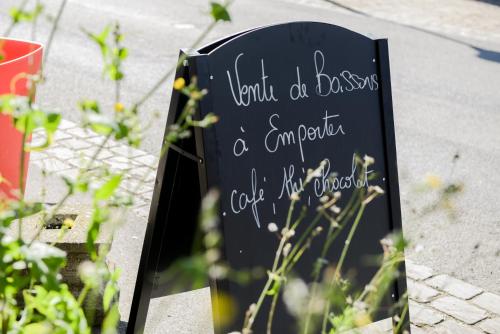 Vente de Boissons
à Emporter
. café, thé, chocolat.